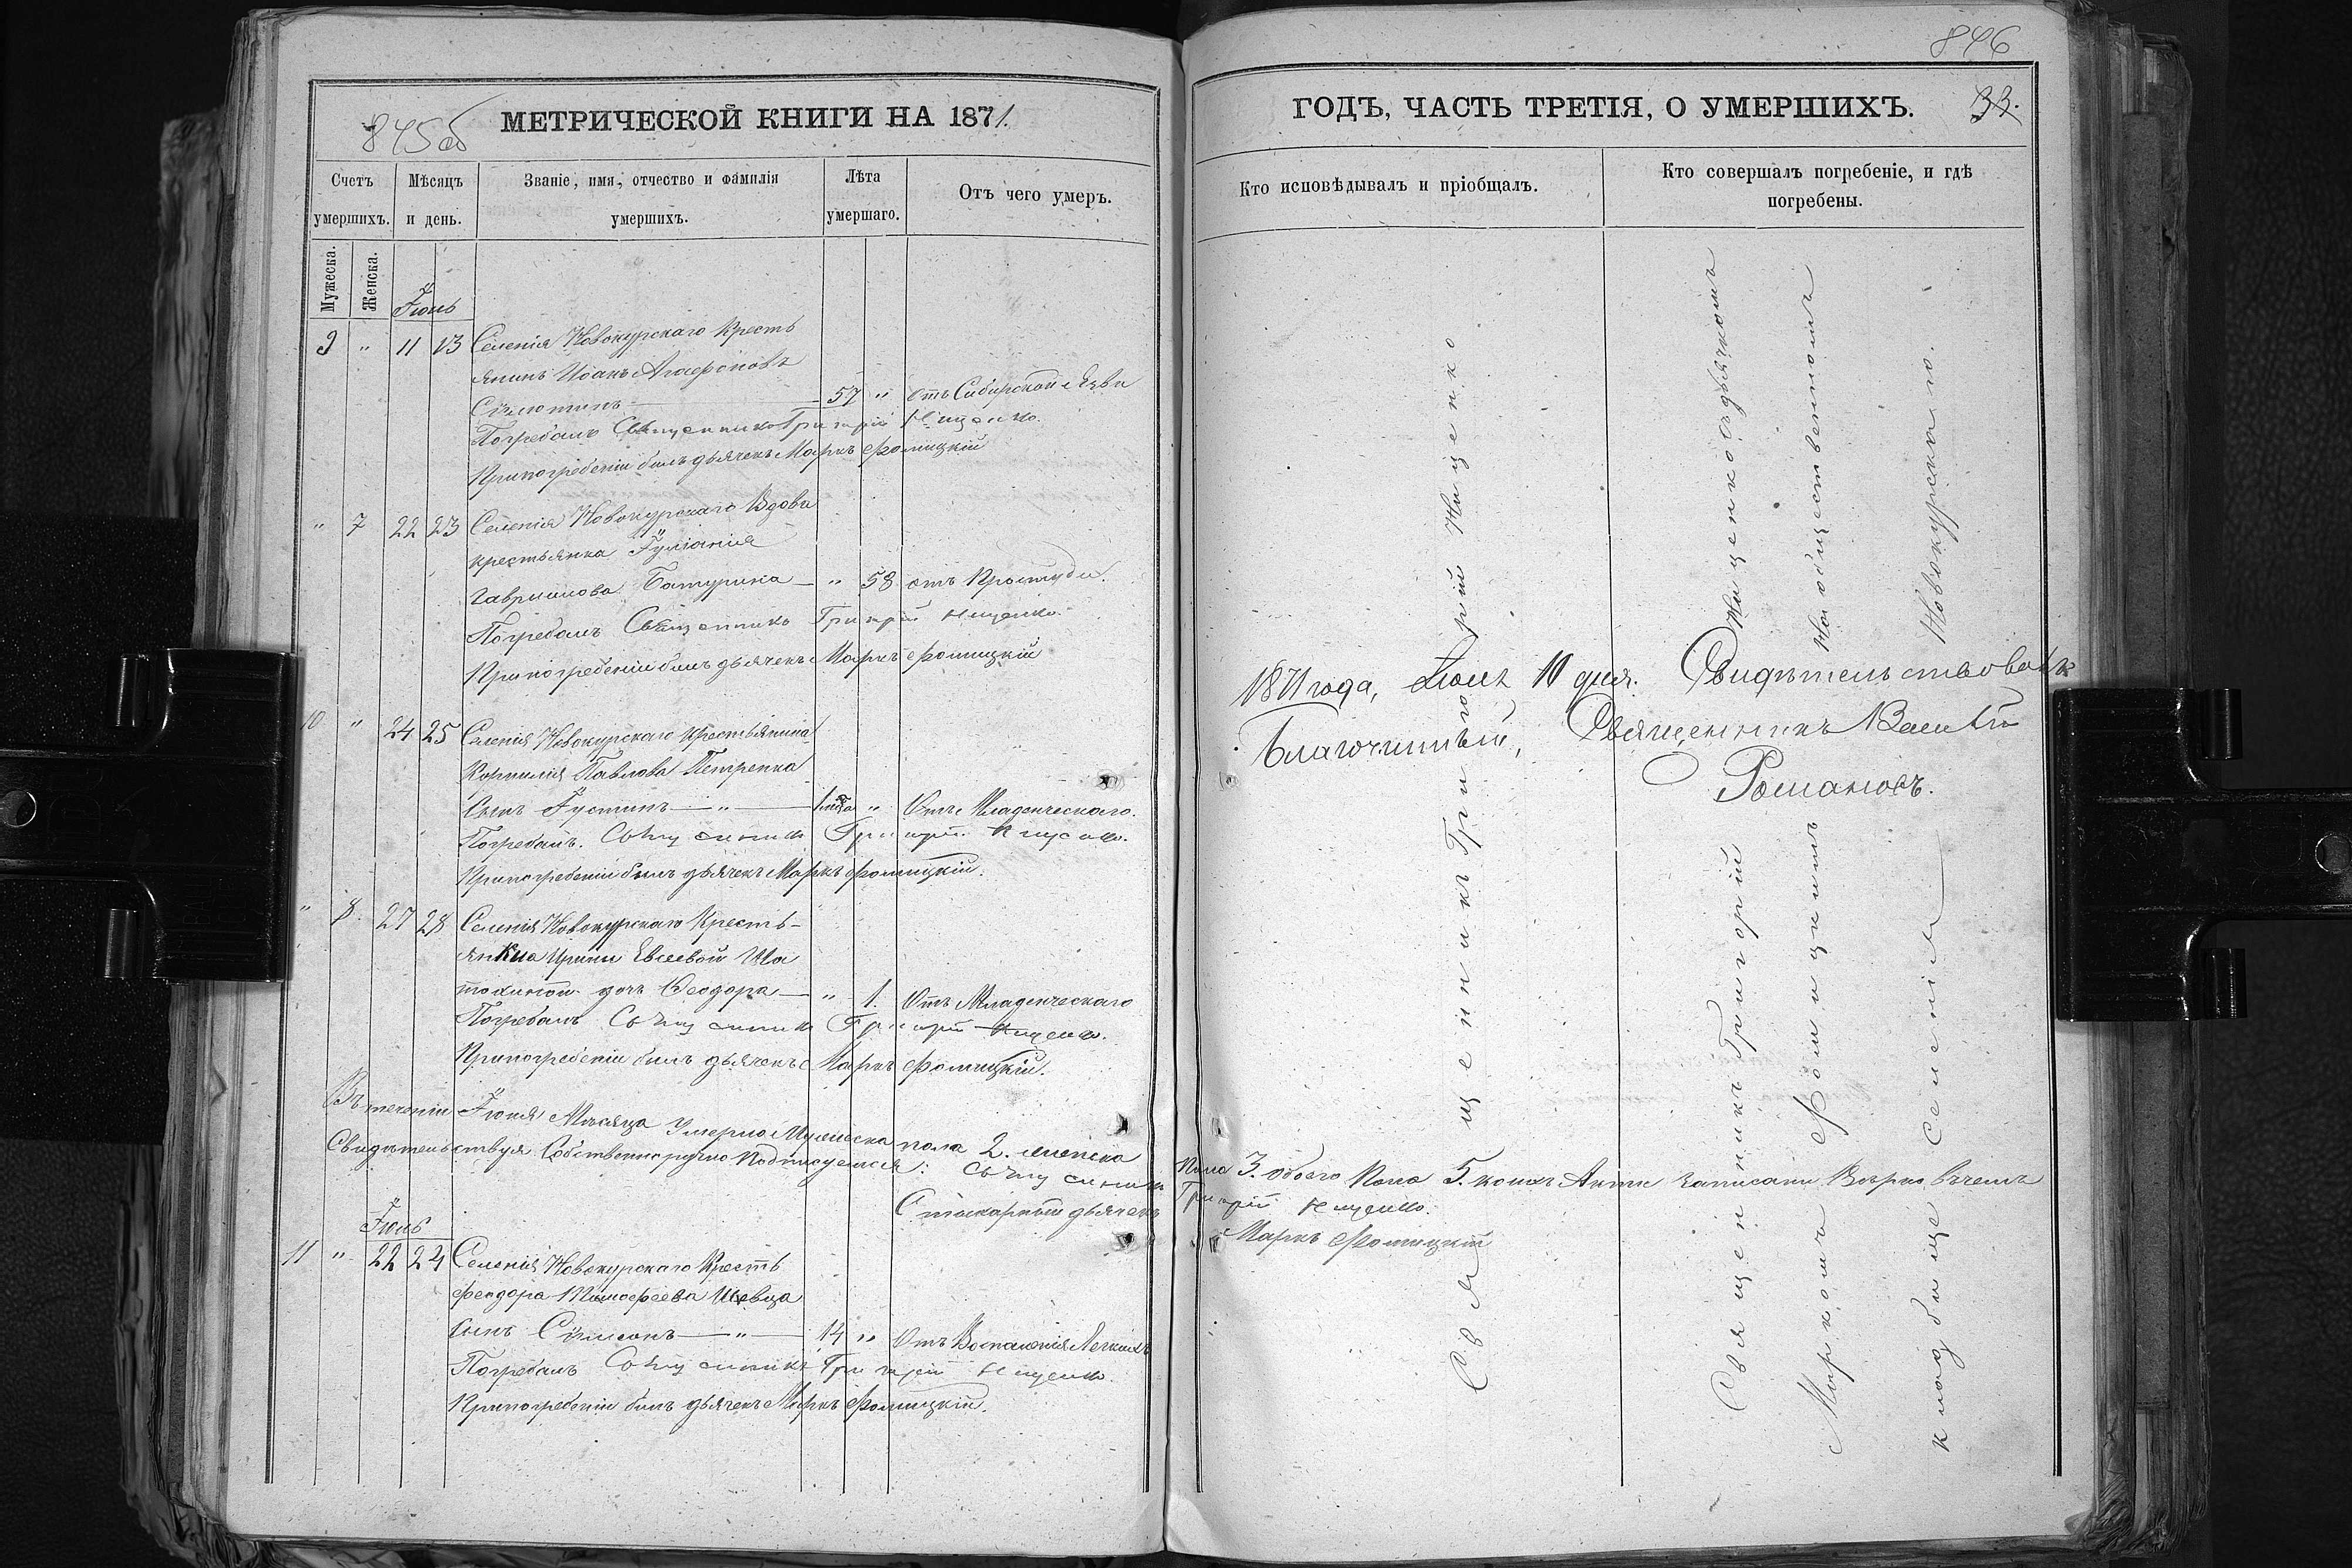 845об
МЕТРИЧЕСКОЙ КНИГИ НА 1871.
Счетъ умершихъ.
Мѣсяцъ и день.
Званіе, имя, отчество и фамилія умершихъ.
Лѣта умершаго.
Отъ чего умеръ.
Мужеска.
Женска.
Іюнь
9 " 11 13 Селенія Новокурскаго Кресть
янинъ Иоанъ Агафоновъ
57 " Отъ Сибирской Язви
Погребалъ Священникъ Григорій Нищенко.
Припогребеніи былъ дьячекъ Маркъ Фомицкій
" 7 22 23 Селенія Новокурскаго Вдова
крестьянка Іуліанія
Гавриилова Батурина — " 58 отъ Простуди.
Погребалъ Священникъ Григорій Нищенко.
Припогребеніи былъ дьячекъ Маркъ Фомицкій
10 " 24 25 Селенія Новокурскаго Крестьянина
Корнилія Павлова Петренка
Сынъ Іустинъ — " — " Отъ Младенческаго.
Погребалъ. Священникъ Григорій Нищенко.
Припогребеніи былъ дьячекъ Маркъ Фомицкій.
" 8. 27 28 Селенія Новокурскаго Кресть-
Ирини Евсеевой
дочь Феодора — " 1. Отъ Младенческаго
Погребалъ Священникъ Григорій Нищенко.
Припогребеніи былъ дьячекъ Маркъ Фомицкій.
Въ теченіи Іюня Мѣсяца Умерло Мужеска пола 2. женска пола 3. обоего Пола 5. коихъ Акти записани Вѣрно въчемъ
Свидѣтельствуя Собственноручно Подписуемся: Священникъ Григорій Нищенко.
дьячекъ Маркъ Фомицкій
Іюль
11 " 22 24 Селенія Новокурскаго Кресть
Феодора Тимофеева Шевца
сынъ Сѵмеонъ — " — 14 " Отъ Воспаленія Легкихъ
Погребалъ Священникъ Григорій Нищенко.
Припогребеніи былъ дьячекъ Маркъ Фомицкій.
846
ГОДЪ, ЧАСТЬ ТРЕТІЯ, О УМЕРШИХЪ.
33.
Кто исповѣдывалъ и пріобщалъ.
Кто совершалъ погребеніе, и гдѣ погребены.
Священникъ Григорій Нищенко
Священникъ Григорій Нищенко съ дьячкомъ
Маркомъ Фомицкимъ На общественномъ
кладбище Селенія Новокурскаго.
1871 года, Іюля 10 дня. Свидѣтельствовалъ
Благочинный, Священникъ Василій
Романовъ.